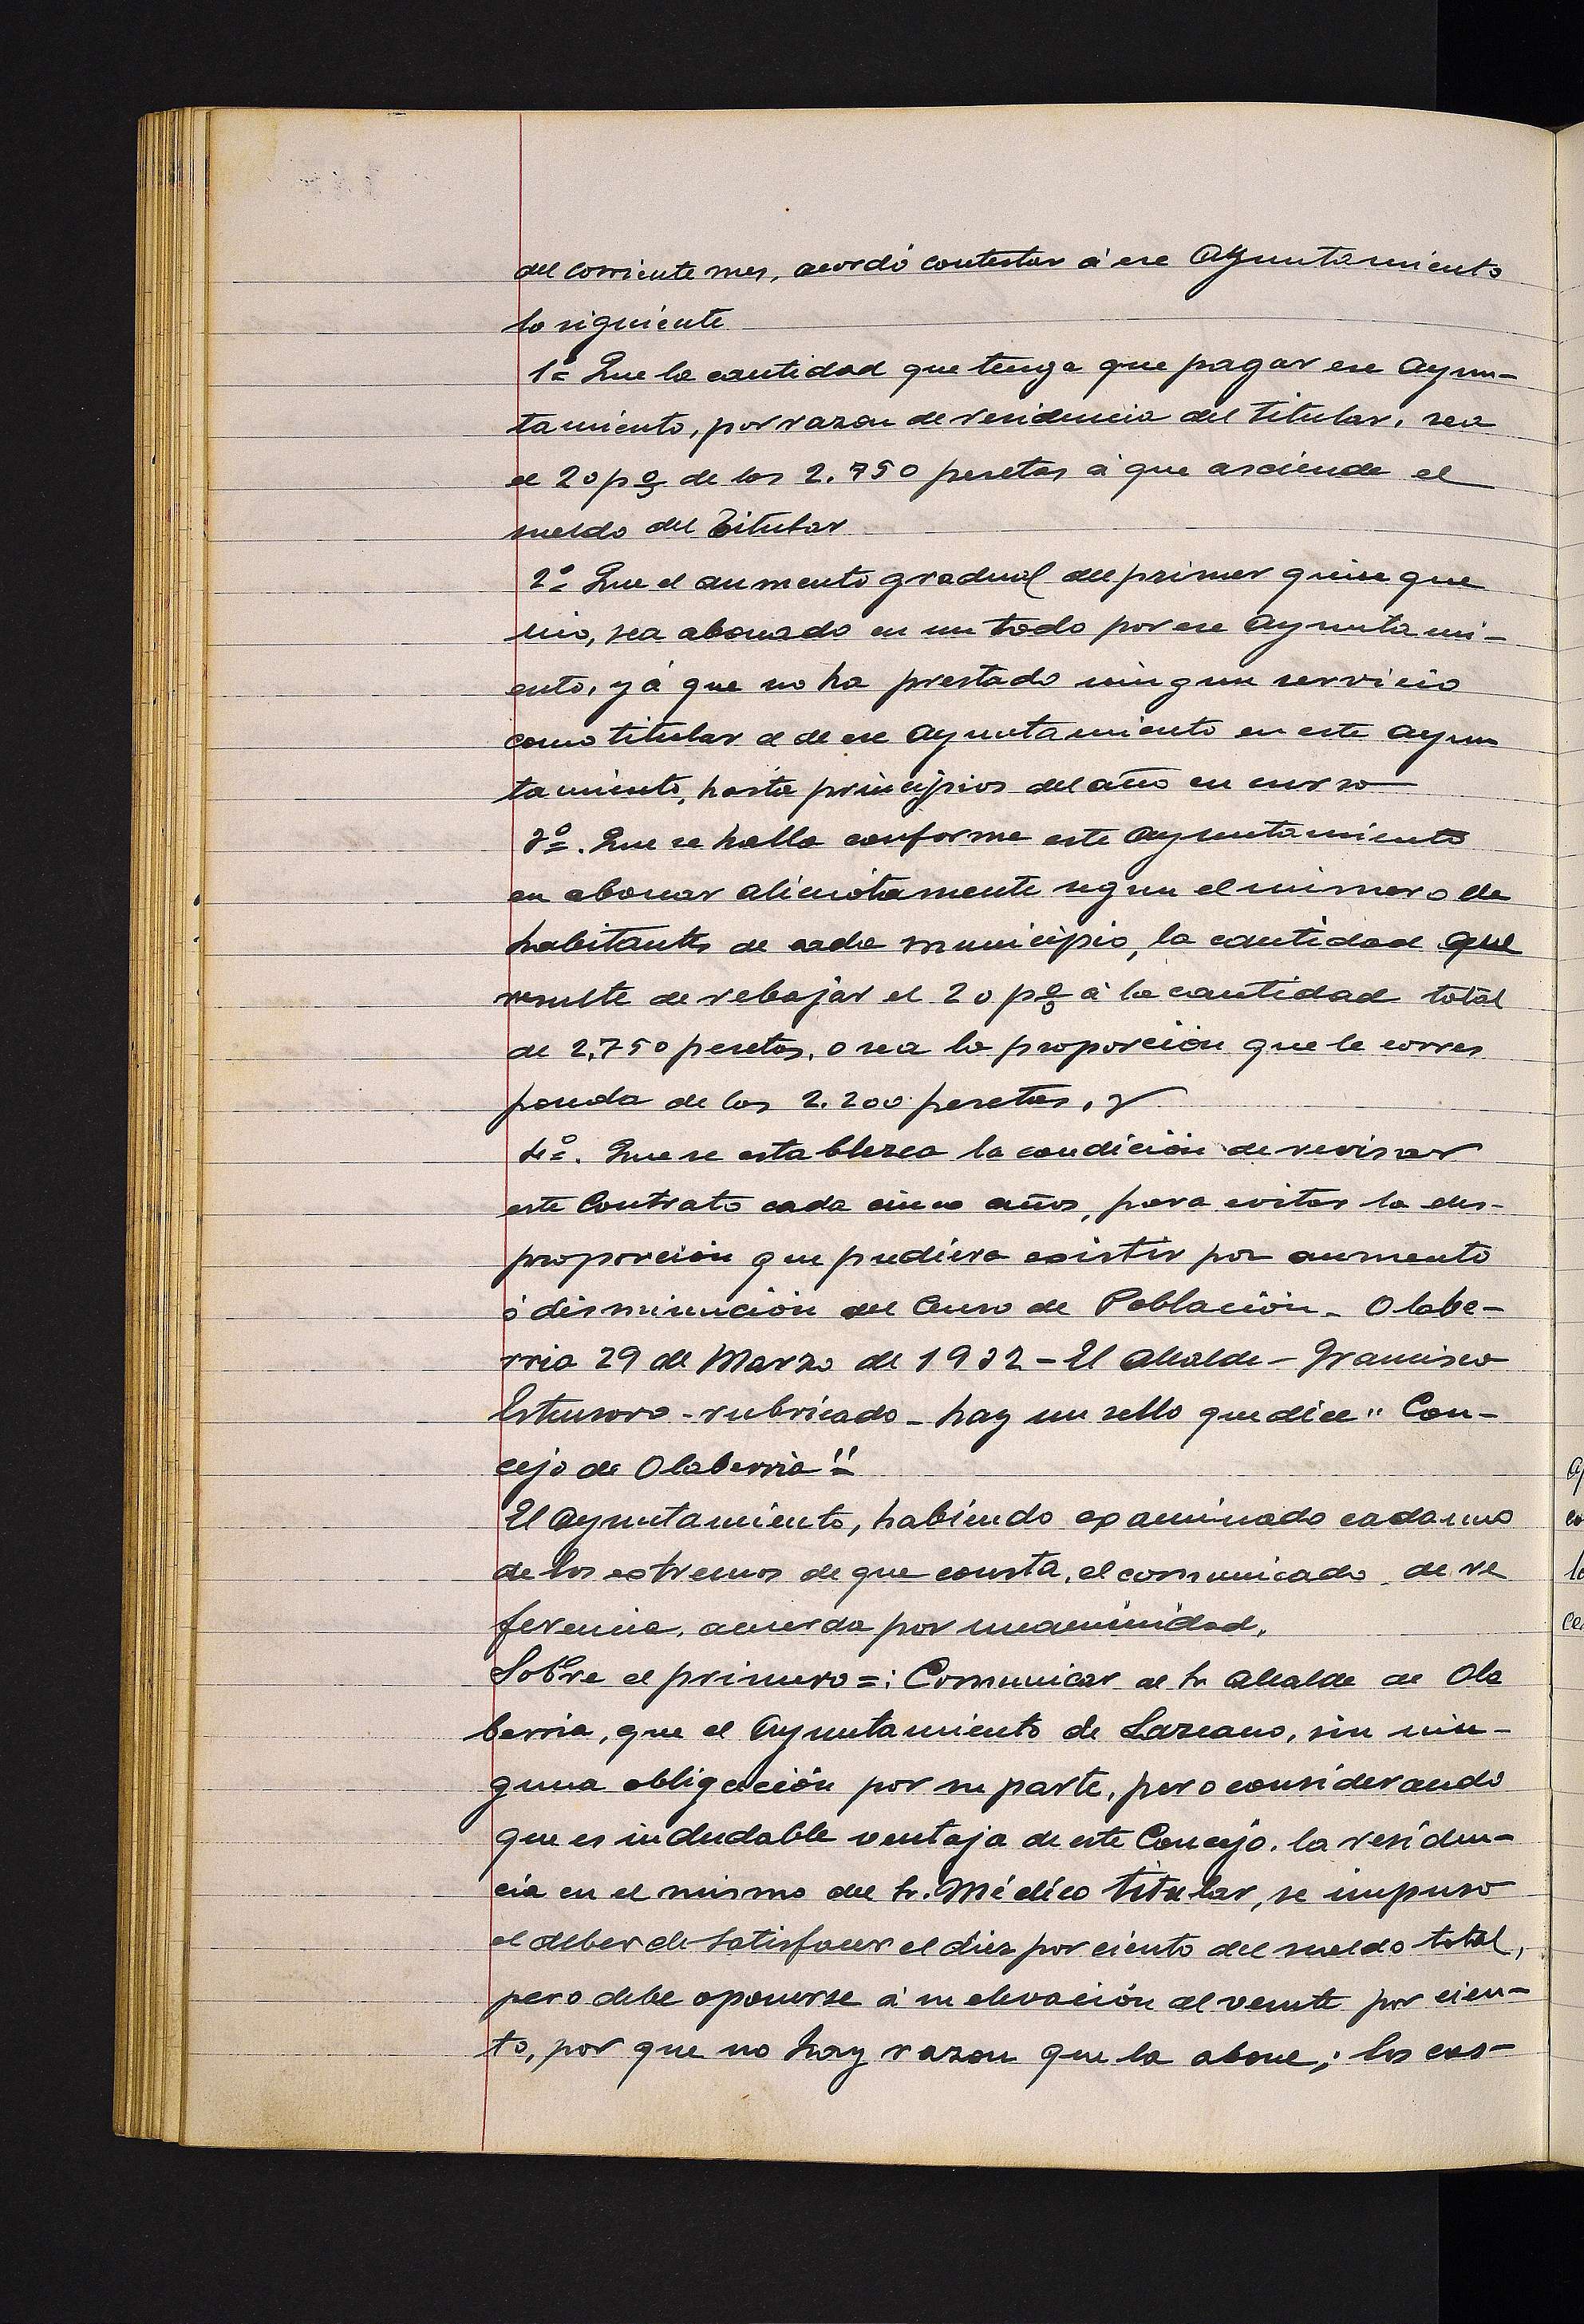 del corriente mes, acordó contestar á ese Ayuntamiento
lo siguiente
1º Que la cantidad que tenga que pagar ese Ayun-
tamiento, por razon de residencia del titular, sea
el 20 p% de las 2.750 pesetas á que asciende el
sueldo del Titular
2º Que el aumento gradual del primer quinque
nio, sea abonado en un todo por ese Ayuntami-
ento, yá que no ha prestado ningun servicio
como titular de ese Ayuntamiento en este Ayun
tamiento, hasta principios del año en curso
3º. Que se halla conforme este Ayuntamiento
en abonar alicuotamente segun el numero de
habitantes de cada municipio, la cantidad que
resulte de rebajar el 20 p% á la cantidad total
de 2.750 pesetas, o sea la proporción que le corres
ponda de las 2.200 pesetas, y
4º. Que se establezca la condición de revisar
este Contrato cada cinco años, para evitar la des-
proporción que pudiera existir por aumento
ó disminución del Censo de Población - Olabe-
rria 29 de Marzo de 1932 - El Alcalde - Francisco
- rubricado - hay un sello que dice " Con-
cejo de Olaberria"
El Ayuntamiento, habiendo examinado cada uno
de los extremos de que consta, el comunicado de re
ferencia, acuerda por unanimidad,
Sobre el primero =: Comunicar al Sr Alcalde de Ola
berria, que el Ayuntamiento de Lazcano, sin nin-
guna obligación por su parte, pero considerando
que es indudable ventaja de este Concejo, la residen-
cia en el mismo del Sr. Médico titular, se impuso
el deber de satisfacer el diez por ciento del sueldo total,
pero debe oponerse á su elevación al veinte por cien-
to, por que no hay razon que la abone; los cas-